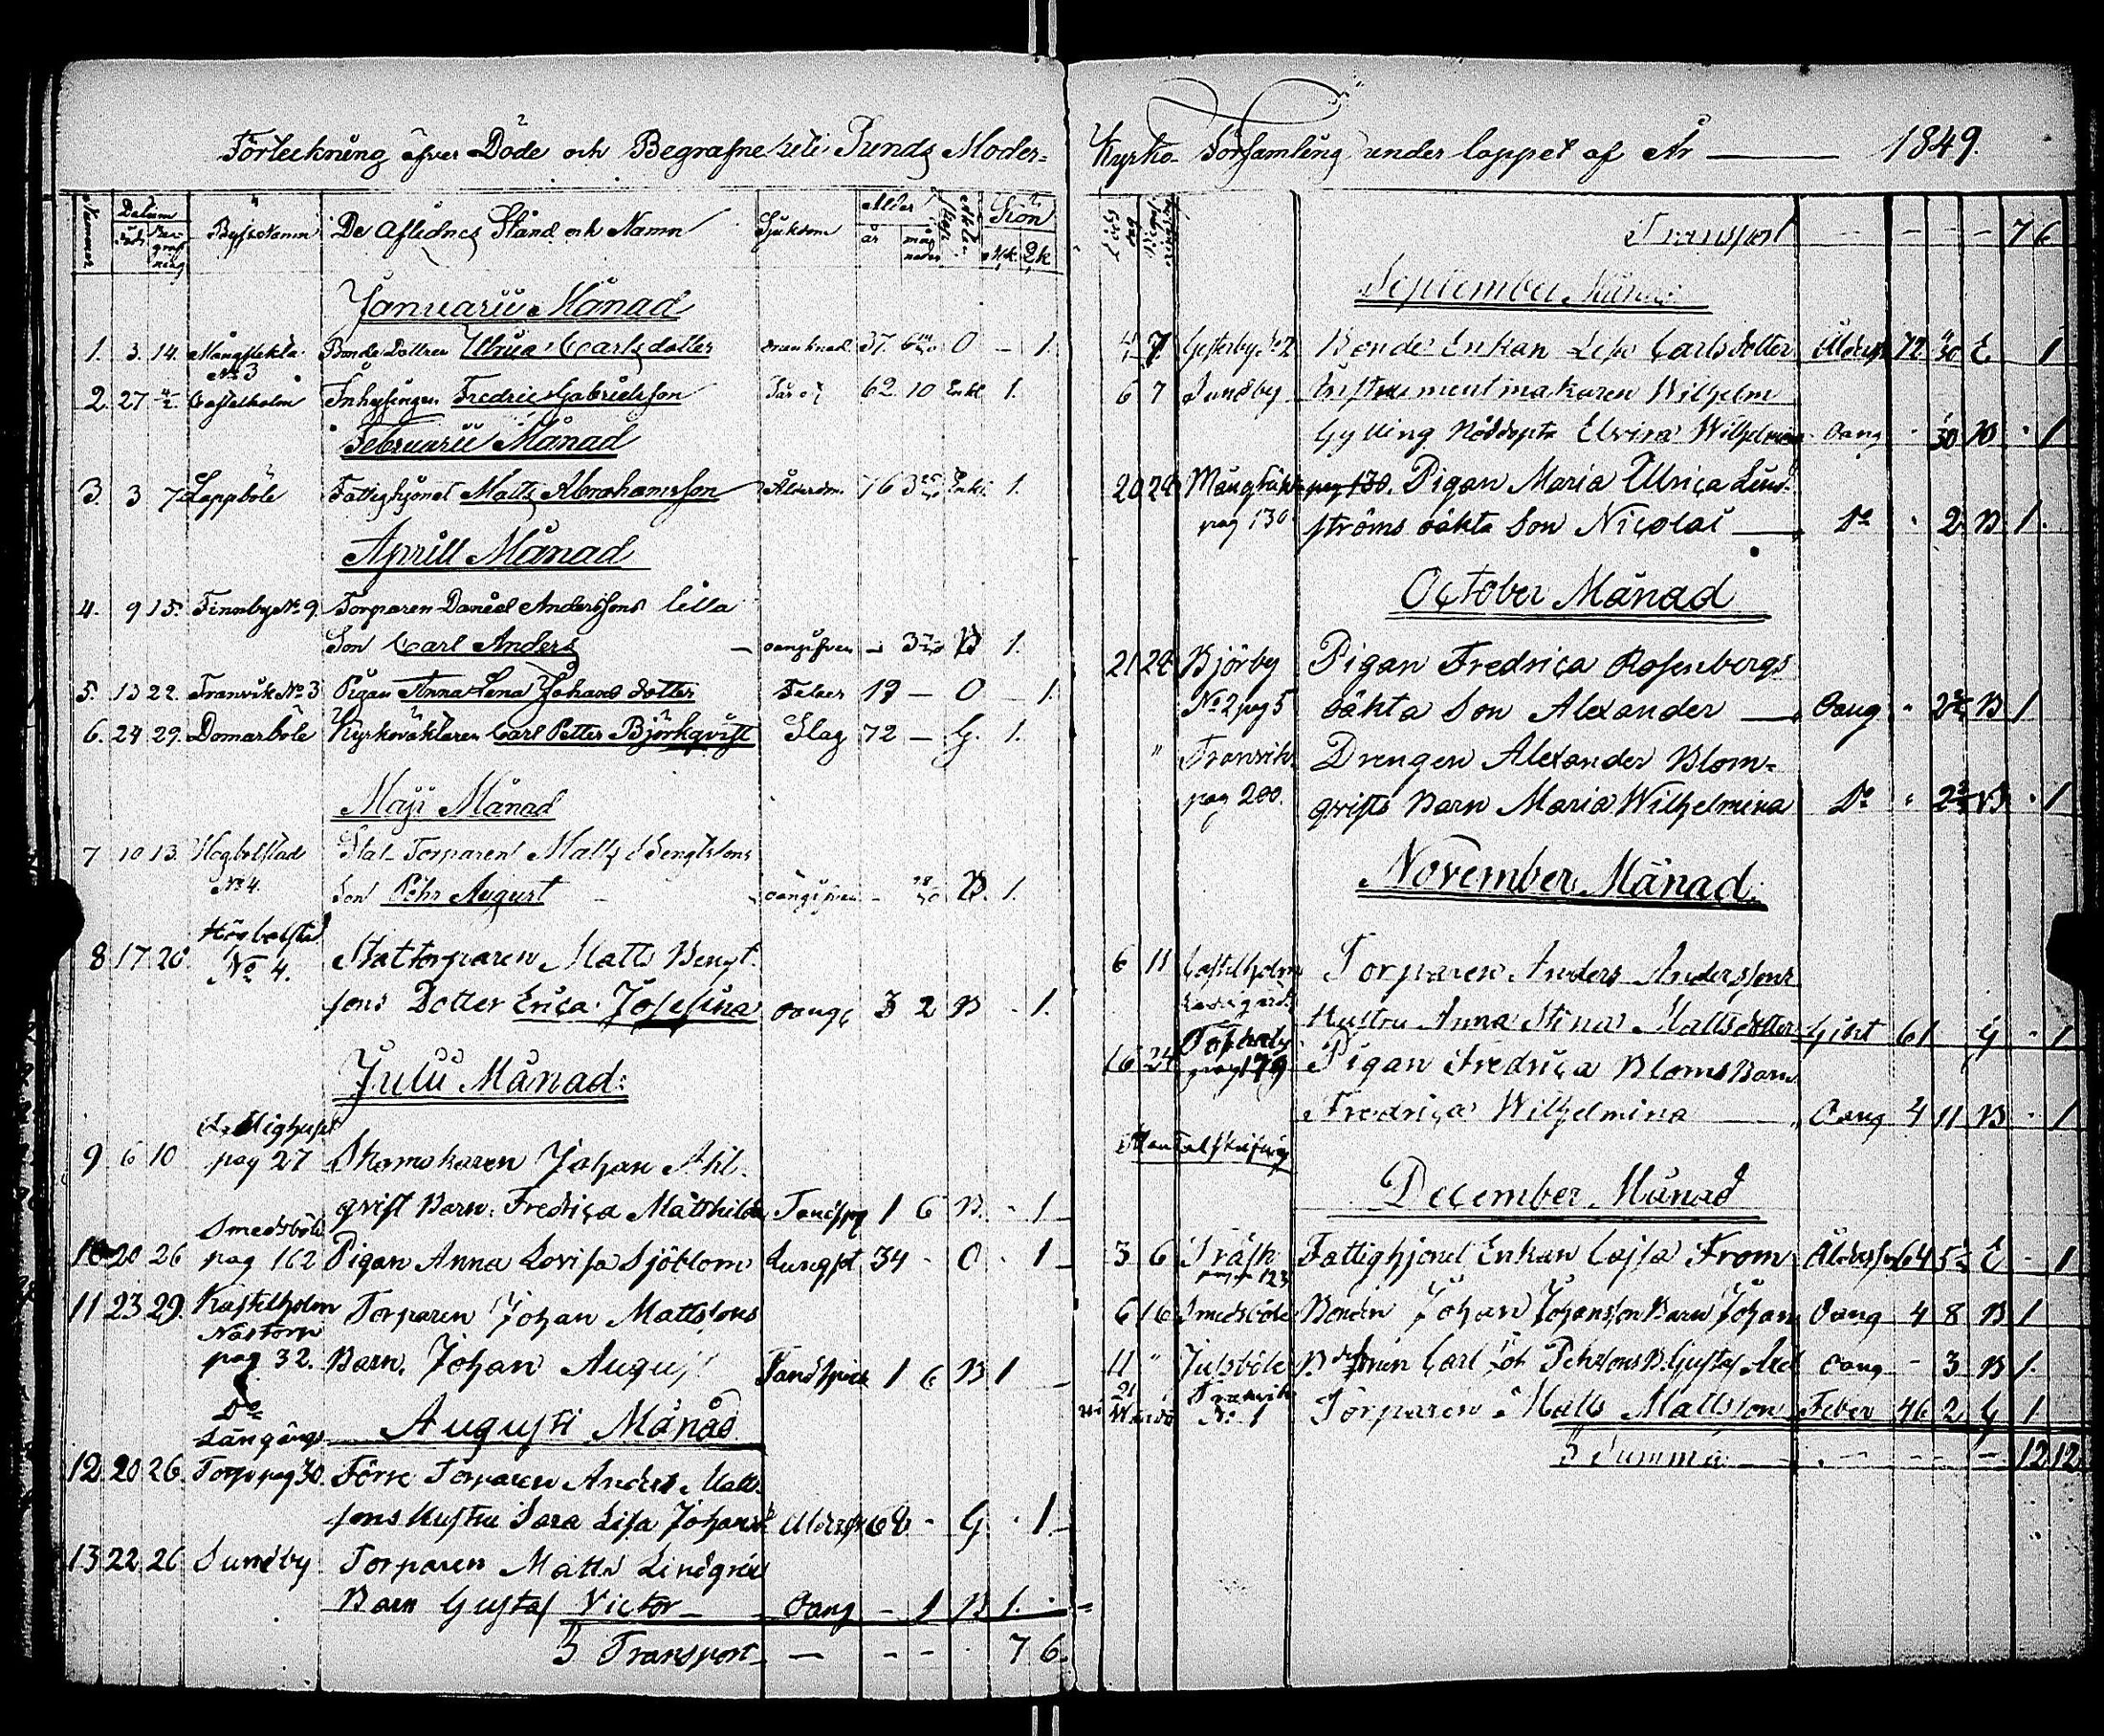 Förteckning öfver Döde och Begrafne uti Sunds Moder=
Nummer Datum Död Begrafning Bys Namn De Aflednes Stånd och Namn Sjukdom Ålder år månader Äkta Kön Mk. Qk.
Januarii Månad
1. 3. 14. Mångstekta Bonde Dottren Ulrica Carlsdotter 37. 6 O – 1.
No 3
2. 27 4/2 Castelholm Inhysingen Fredric Gabrielsson 62. 10 Enkl. 1.
Februarii Månad
3. 3 7 Lappböle Fattighjonet Matts Abrahamsson Ålderdm. 76 3 Enkl. 1.
Aprill Månad
4. 9 15. Finnby No 9. Torparen Daniel Anderssons lilla
Son Carl Anders – oangifven – 3 B 1.
5. 13 22. Tranvik No 3 Pigan Anna Lena Johans dotter Feber 19 – O – 1.
6. 24 29. Domarböle Kyrkväktaren Carl Petter Björkqvist Slag 72 – G. 1.
Maji Månad
7 10 13. Högbolstad Stat-Torparen Matts Bengtssons
No 4. Son Pehr August – oangifven – 28/30 B. 1.
Högbolstad
8 17 20. No 4. Stattorparen Matts Bengt-
sons Dotter Erica Josefina oangi 3 2 B – 1.
Julii Månad:
9 6 10 pag 27 Skomakaren Johan Ahl-
qvist Barn: Fredrica Mathilda Tandspr 1 6 B. – 1
Smedsböle
10 20 26 pag 162 Pigan Anna Lovisa Sjöblom Lungsot 34 – O – 1
11 23 29. Kastelholm Torparen Johan Mattssons
Nästorp
pag 32. Barn. Johan August Tandsprick 1 6 B 1
Do
Långängs Augusti Månad
12 20 26. Torp pag 30. Förre Torparen Anders Matts-
sons Hustru Sara Lisa Johansd. Ålderdom 68 – G – 1
13 22 26 Sundby Torparen Matts Lindgrén
Barn Gustaf Victor – Oang – 1 B 1.
S Transport – – – 7 6
Kyrko Församling under loppet af År — 1849.
Transport – – – – 7 6
September Månad
4 7 Gesterby No 2 Bonde Enkan Lisa Carlsdotter Ålderdom 72 E 1
6 7 Sundby Instrumentmakaren Wilhelm
Gylling Nöddöpta Elvira Wilhelmina Oang – B – 1
20 24 Mångstekta pag 130. Pigan Maria Ulrica Lind-
pag 130 ströms oäkta Son Nicolai — Do – 2 B 1.
October Månad
21 24 Björby Pigan Fredrica Rosenbergs
No 2 pag 5 oäkta Son Alexander — Oang – 2 B 1
" Tranvik Drengen Alexander Blom-
pag 200. qvists Barn Maria Wilhelmina Do – 2 B – 1
November Månad.
6 11 Castelholm Torparen Anders Anderssons
Ladugård Hustru Anna Stina Mattsdotter Gikt 61 G – 1
16 24 pag 179 Pigan Fredrica Bloms Barn
Fredrica Wilhelmina — Oang 4 11 B – 1
Mantalskrifning
December Månad
3 6 Träsk Fattighjonet Enkan Cajsa From Ålderdom 64 5 E – 1
pag 123
6 16 Smedsböle Bonden Johan Johansson Barn Johan Oang 4 8 B 1
11 " Julsböle Carl Joh Pehrssons B. Gustaf Axel Oang – 3 B 1.
21 Tranvik
No 1 Torparen Matts Mattsson Feber 46 2 G 1
S Summa — – – – 12 12